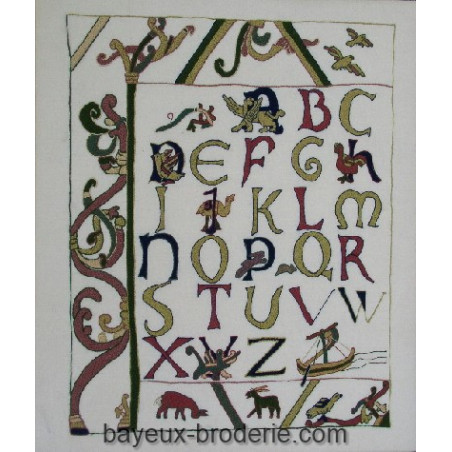 A B C
D E F G H
I J K L M
N O P Q R
S T U V W
X Y Z
bayeux-broderie.com